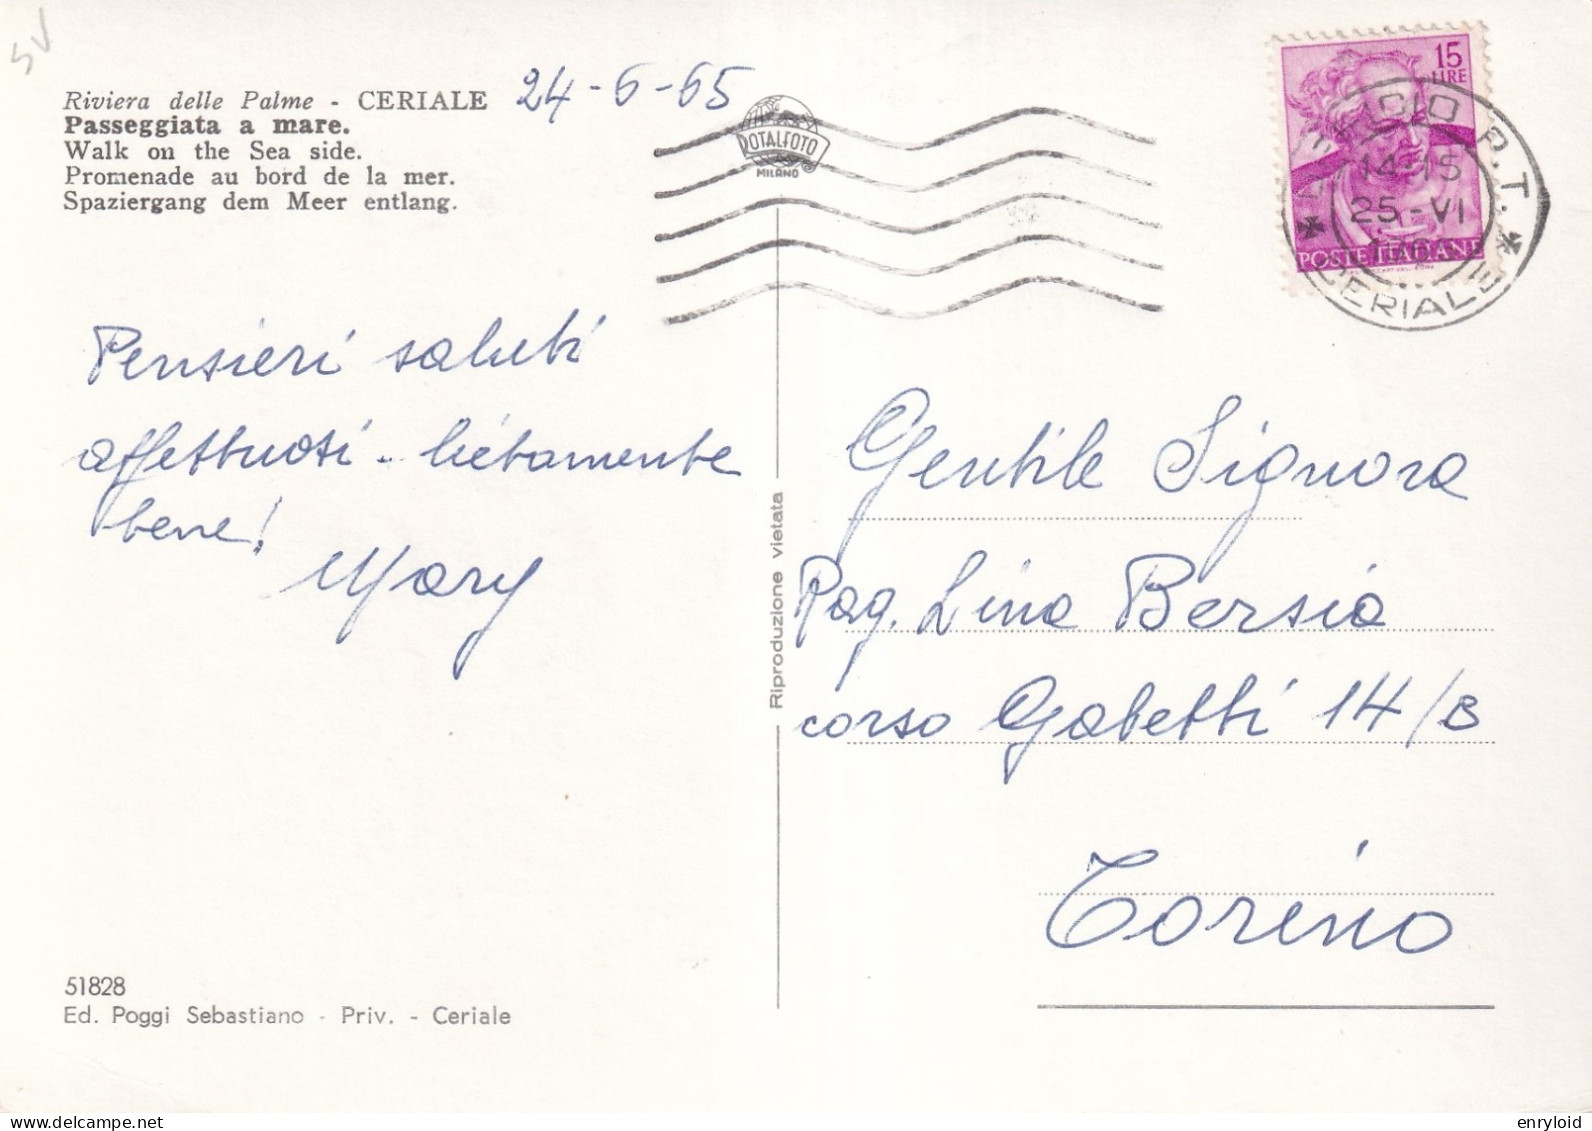 SV
Riviera delle Palme - CERIALE
24-6-65
Passeggiata a mare.
Walk on the Sea side.
Promenade au bord de la mer.
Spaziergang dem Meer entlang.
ROTALFOTO
MILANO
15
LIRE
POSTE ITALIANE
UFFICIO P.T.
14-15
25-VI
CERIALE
Pensieri saluti
affettuosi - lietamente
bene!
Mary
Riproduzione vietata
Gentile Signora
Rag. Lina Bersia
corso Gabetti 14/B
Torino
51828
Ed. Poggi Sebastiano - Priv. - Ceriale
enryloid